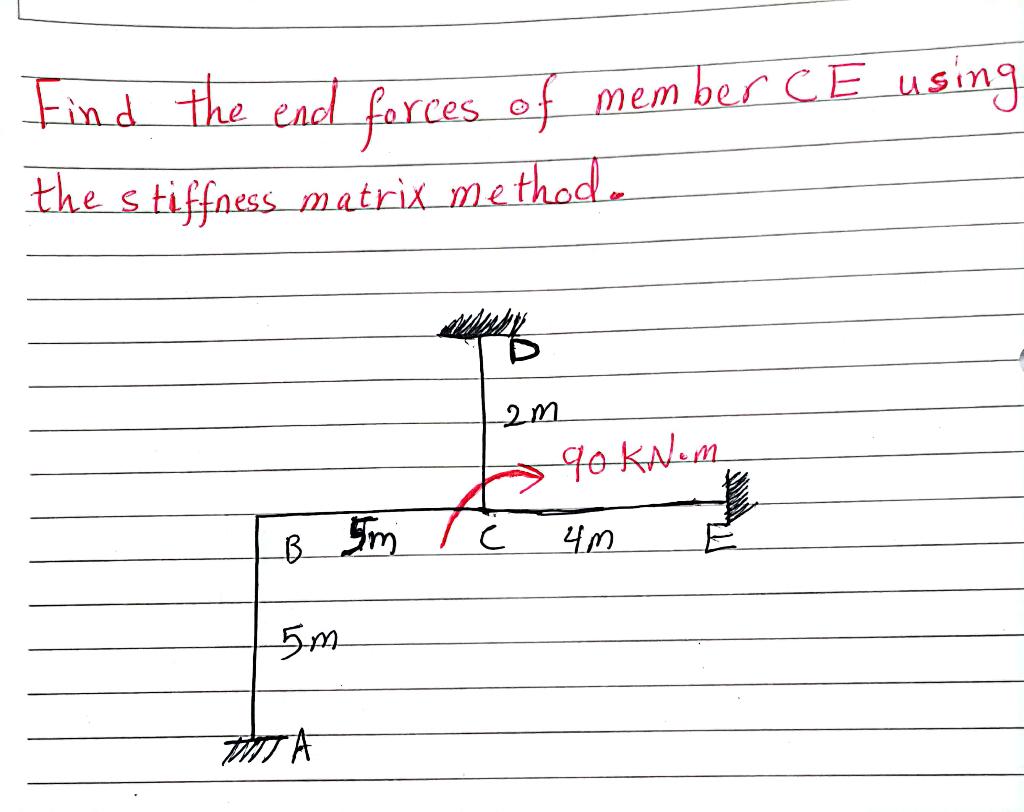 Find the end forces of member CE using
the stiffness matrix method.
D
2m
90 KN.m
B 5m C 4m E
5m
A